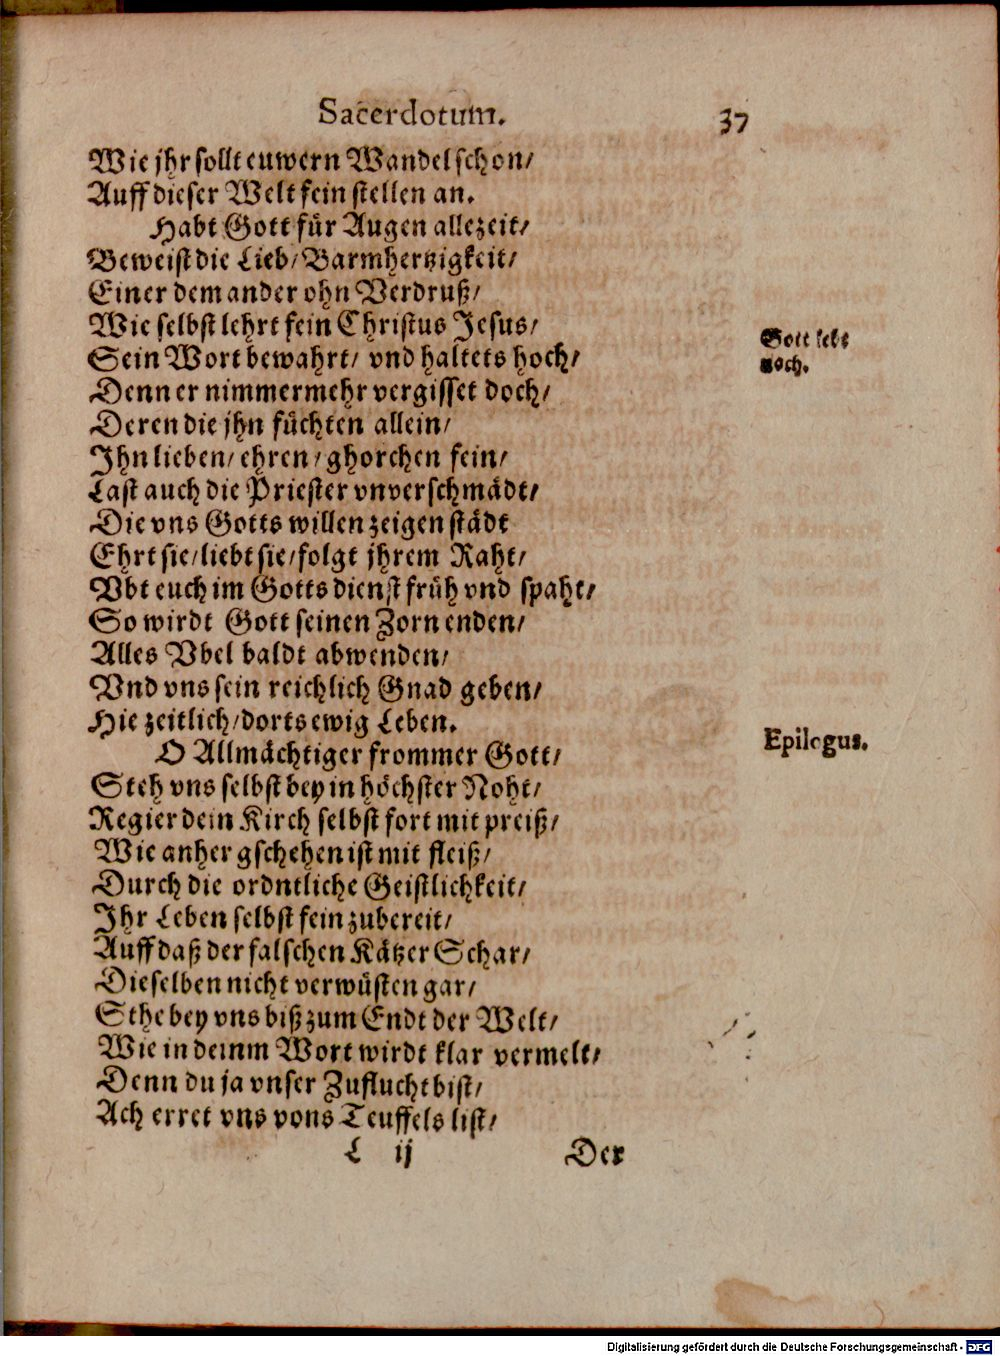 Sacerdotum. 37
Wie jhr sollt euwern Wandel schon/
Auff dieser Welt fein stellen an.
Habt Gott für Augen allezeit/
Beweist die Lieb/ Barmhertzigkeit/
Einer dem ander ohn Verdruß/
Wie selbst lehrt fein Christus Jesus/
Sein Wort bewahrt/ vnd haltets hoch/
Gott lebt
noch.
Denn er nimmermehr vergisset doch/
Deren die jhn füchten allein/
Ihn lieben/ ehren/ ghorchen fein/
Last auch die Priester vnverschmädt/
Die vns Gotts willen zeigen städt
Ehrt sie/ liebt sie/ folgt jhrem Raht/
Vbt euch im Gottsdienst früh vnd spaht/
So wirdt Gott seinen Zorn enden/
Alles Vbel baldt abwenden/
Vnd vns sein reichlich Gnad geben/
Hie zeitlich/ dorts ewig Leben.
O Allmächtiger frommer Gott/
Epilogus.
Steh vns selbst bey in höchster Noht/
Regier dein Kirch selbst fort mit preiß/
Wie anher gschehen ist mit fleiß/
Durch die ordntliche Geistlichkeit/
Ihr Leben selbst fein zubereit/
Auff daß der falschen Kätzer Schar/
Dieselben nicht verwüsten gar/
Sthe bey vns biß zum Endt der Welt/
Wie in deinm Wort wirdt klar vermelt/
Denn du ja vnser Zuflucht bist/
Ach erret vns vons Teuffels list/
L ij Der
Digitalisierung gefördert durch die Deutsche Forschungsgemeinschaft - DFG